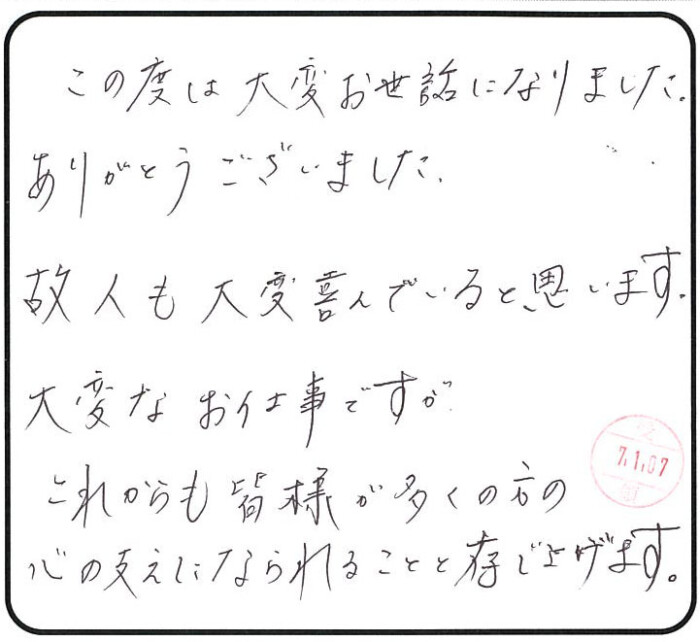 この度は大変お世話になりました.
ありがとうございました.
故人も大変喜んでいると思います.
大変なお仕事ですが
7.1.07
これからも皆様が多くの方の
心の支えになられることと存じ上げます。